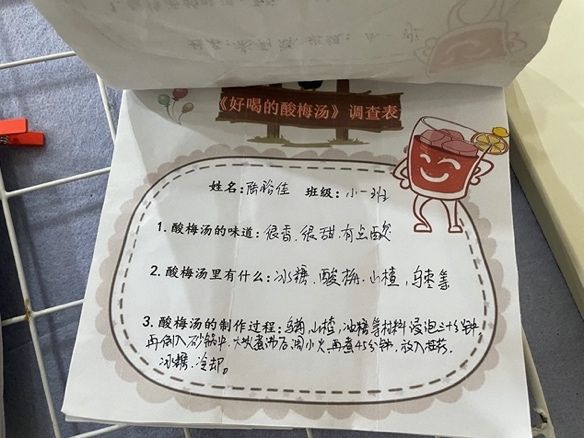 《好喝的酸梅汤》调查表
姓名:陈裕佳 班级:小一班
1.酸梅汤的味道:很香,很甜,有点酸
2.酸梅汤里有什么:冰糖、酸梅、山楂,乌枣等
3.酸梅汤的制作过程:乌梅,山楂,冰糖等材料浸泡三十分钟
再倒入砂锅中,大火煮沸后调小火,再煮45分钟,放入
冰糖、冷却。